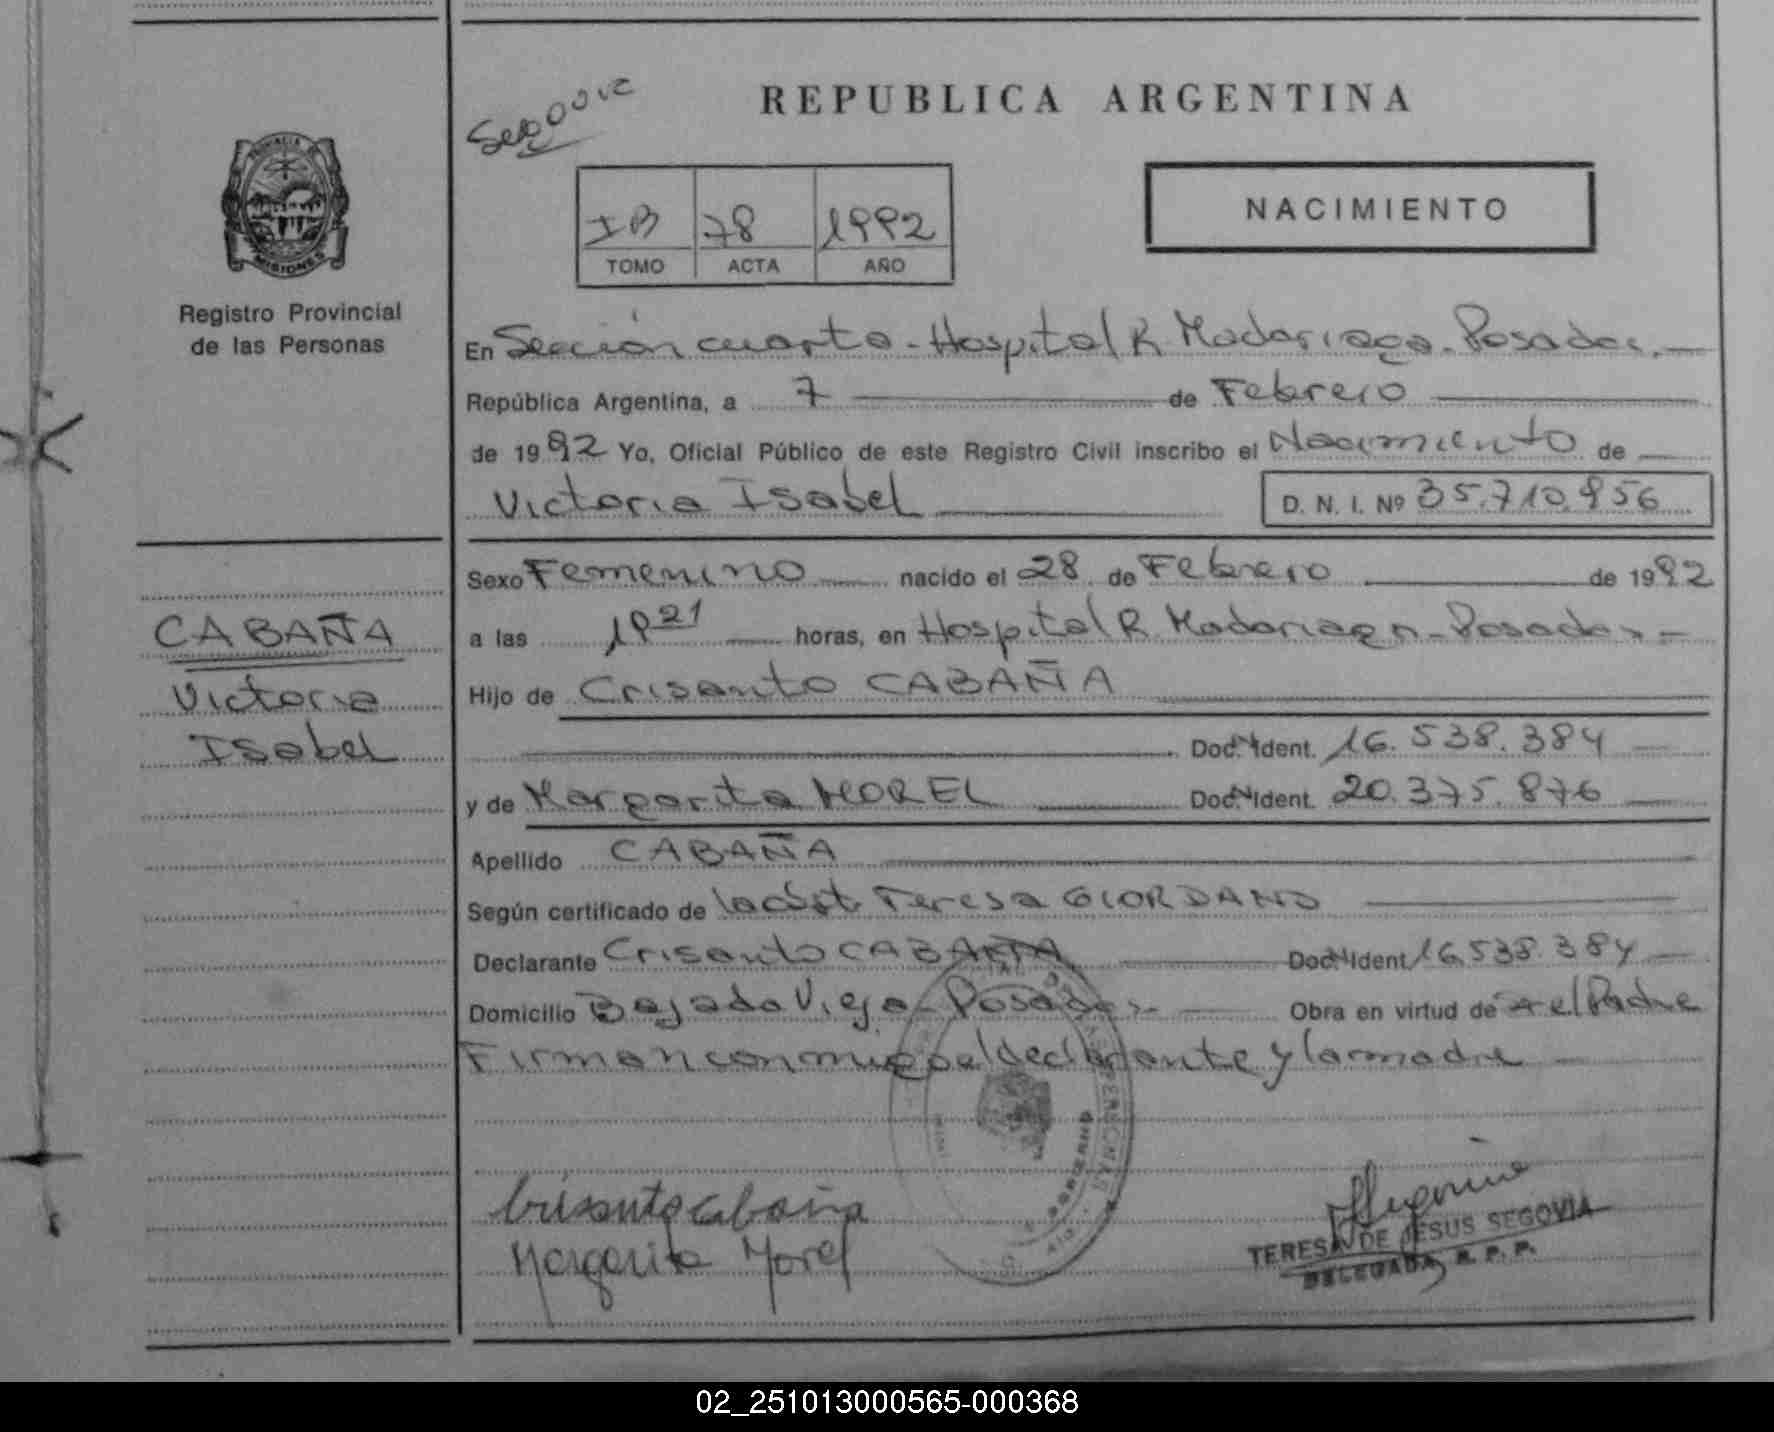 Segovia
REPUBLICA ARGENTINA
PROVINCIA DE
MISIONES
Registro Provincial
de las Personas
IB 78 1992
TOMO ACTA AÑO
NACIMIENTO
En Sección cuarta - Hospital R. Madariaga - Posadas.
República Argentina, a 7 de Febrero
de 1992 Yo, Oficial Público de este Registro Civil inscribo el Nacimiento de
Victoria Isabel D. N. I. Nº 35.710.956
Sexo Femenino nacido el 28 de Febrero de 1992
a las 19 21 horas, en Hospital R. Madariaga - Posadas -
Hijo de Crisanto CABAÑA
Doc. Ident. 16.538.384
y de Margarita MOREL Doc. Ident. 20.375.876
Apellido CABAÑA
Según certificado de la obst. Teresa GIORDANO
Declarante Crisanto CABAÑA Doc. Ident. 16.538.384
Domicilio Bajada Vieja - Posadas - Obra en virtud de el Padre
Firman conmigo el declarante y la madre
CABAÑA
Victoria
Isabel
Crisanto Cabaña
Margarita Morel
TERESA DE JESUS SEGOVIA
DELEGADA R. P. P.
02_251013000565-000368